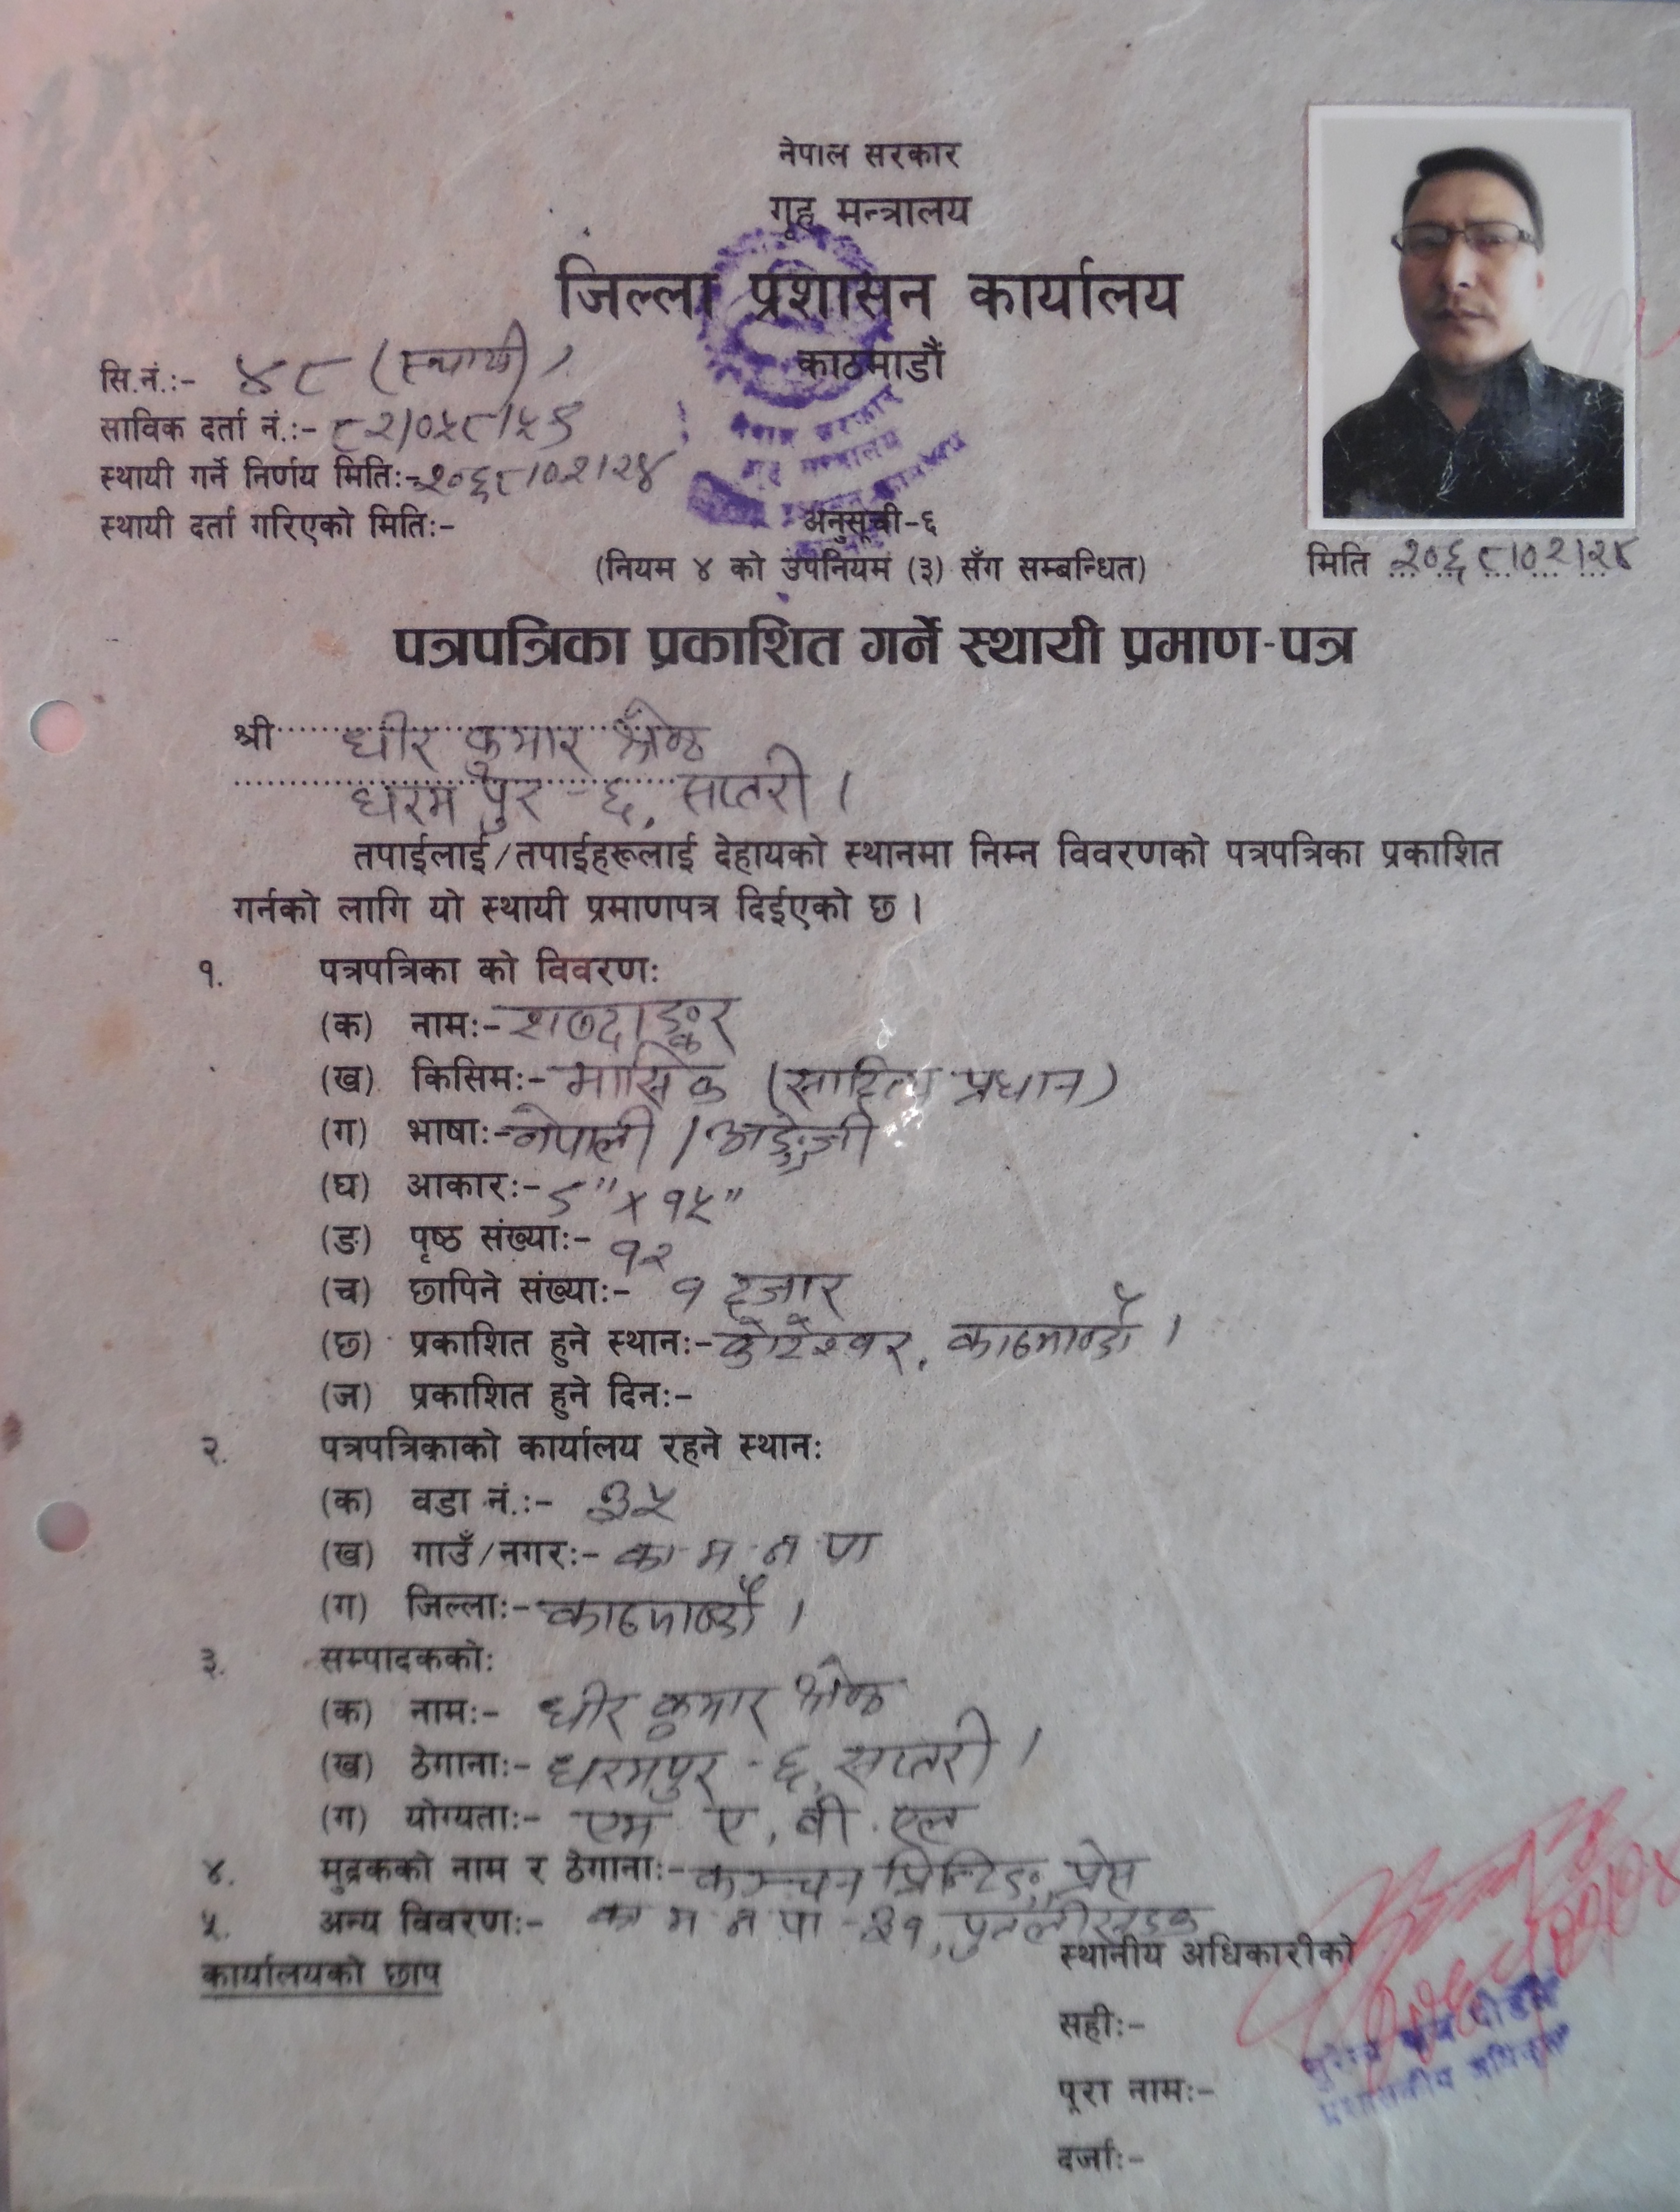 नेपाल सरकार
गृह मन्त्रालय
जिल्ला प्रशासन कार्यालय
काठमाडौं
सि.नं.:- ४८ (स्थायी)
साविक दर्ता नं.:- ८२/०५८/५९
स्थायी गर्ने निर्णय मितिः- २०६८/०२/२४
स्थायी दर्ता गरिएको मितिः-
नेपाल सरकार
गृह मन्त्रालय
अनुसूची-६
(नियम ४ को उपनियम (३) सँग सम्बन्धित)
मिति २०६८/०२/२४
पत्रपत्रिका प्रकाशित गर्ने स्थायी प्रमाण-पत्र
श्री धीर कुमार श्रेष्ठ
धरमपुर - ६, सप्तरी ।
तपाईलाई/तपाईहरूलाई देहायको स्थानमा निम्न विवरणको पत्रपत्रिका प्रकाशित
गर्नको लागि यो स्थायी प्रमाणपत्र दिईएको छ ।
१. पत्रपत्रिका को विवरणः
(क) नामः- शब्दाङ्कुर
(ख) किसिमः- मासिक (साहित्य प्रधान)
(ग) भाषाः- नेपाली / अङ्ग्रेजी
(घ) आकारः- ९" x १५"
(ङ) पृष्ठ संख्याः- १२
(च) छापिने संख्याः- १ हजार
(छ) प्रकाशित हुने स्थानः- कोटेश्वर, काठमाण्डौं ।
(ज) प्रकाशित हुने दिनः-
२. पत्रपत्रिकाको कार्यालय रहने स्थानः
(क) वडा नं.:- ३५
(ख) गाउँ/नगरः- का म न पा
(ग) जिल्लाः- काठमाण्डौं ।
३. सम्पादककोः
(क) नामः- धीर कुमार श्रेष्ठ
(ख) ठेगानाः- धरमपुर - ६, सप्तरी ।
(ग) योग्यताः- एम ए, बी. एल
४. मुद्रकको नाम र ठेगानाः- कञ्चन प्रिन्टिङ्ग प्रेस
५. अन्य विवरणः- का म न पा - ३१, पुतलीसडक
कार्यालयको छाप
स्थानीय अधिकारीको
सहीः-
पूरा नामः-
दर्जाः-